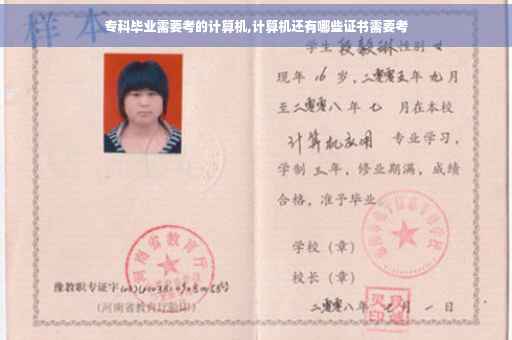 专科毕业需要考的计算机,计算机还有哪些证书需要考
样本
学生段毅琳性别女
现年16岁,二零零五年九月
至二零零八年七 月在本校
计算机应用 专业学习,
学制三年,修业期满,成绩
合格,准予毕业
学校(章)
校长(章)
二零零八年七月一日
河南省教育厅
豫教职专证字
(河南省教育厅验印)